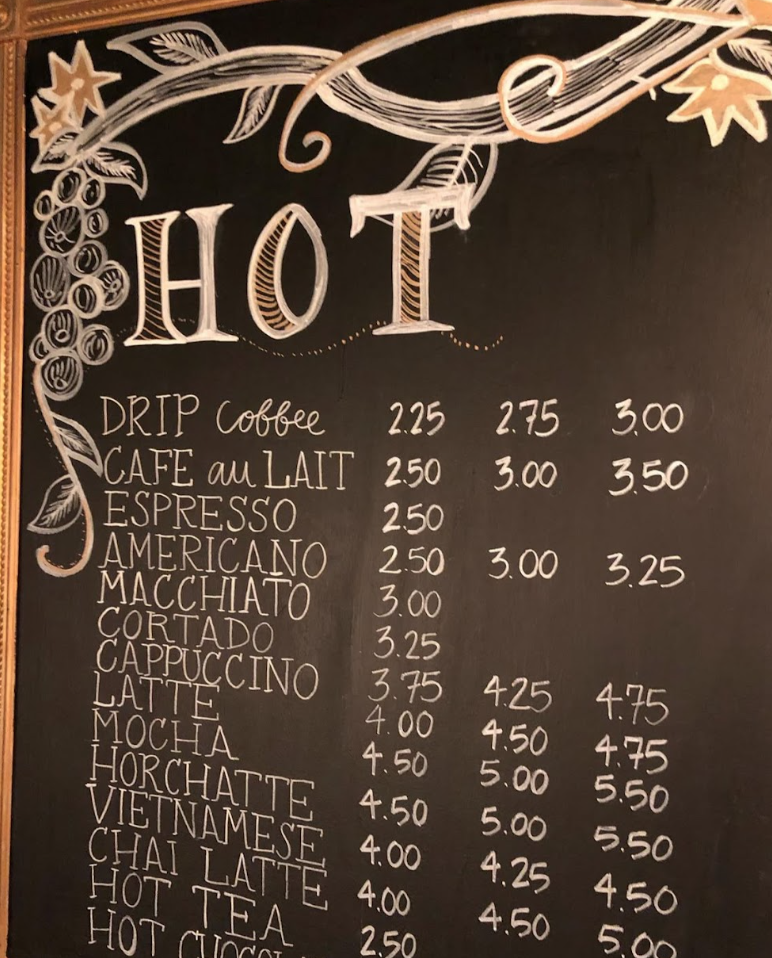 HOT
DRIP coffee 2.25 2.75 3.00
CAFE au LAIT 2.50 3.00 3.50
ESPRESSO 2.50
AMERICANO 2.50 3.00 3.25
MACCHIATO 3.00
CORTADO 3.25
CAPPUCCINO 3.75 4.25 4.75
LATTE 4.00 4.50 4.75
MOCHA 4.50 5.00 5.50
HORCHATTE 4.50 5.00 5.50
VIETNAMESE 4.00 4.25 4.50
CHAI LATTE 4.00 4.50 5.00
HOT TEA 2.50
HOT